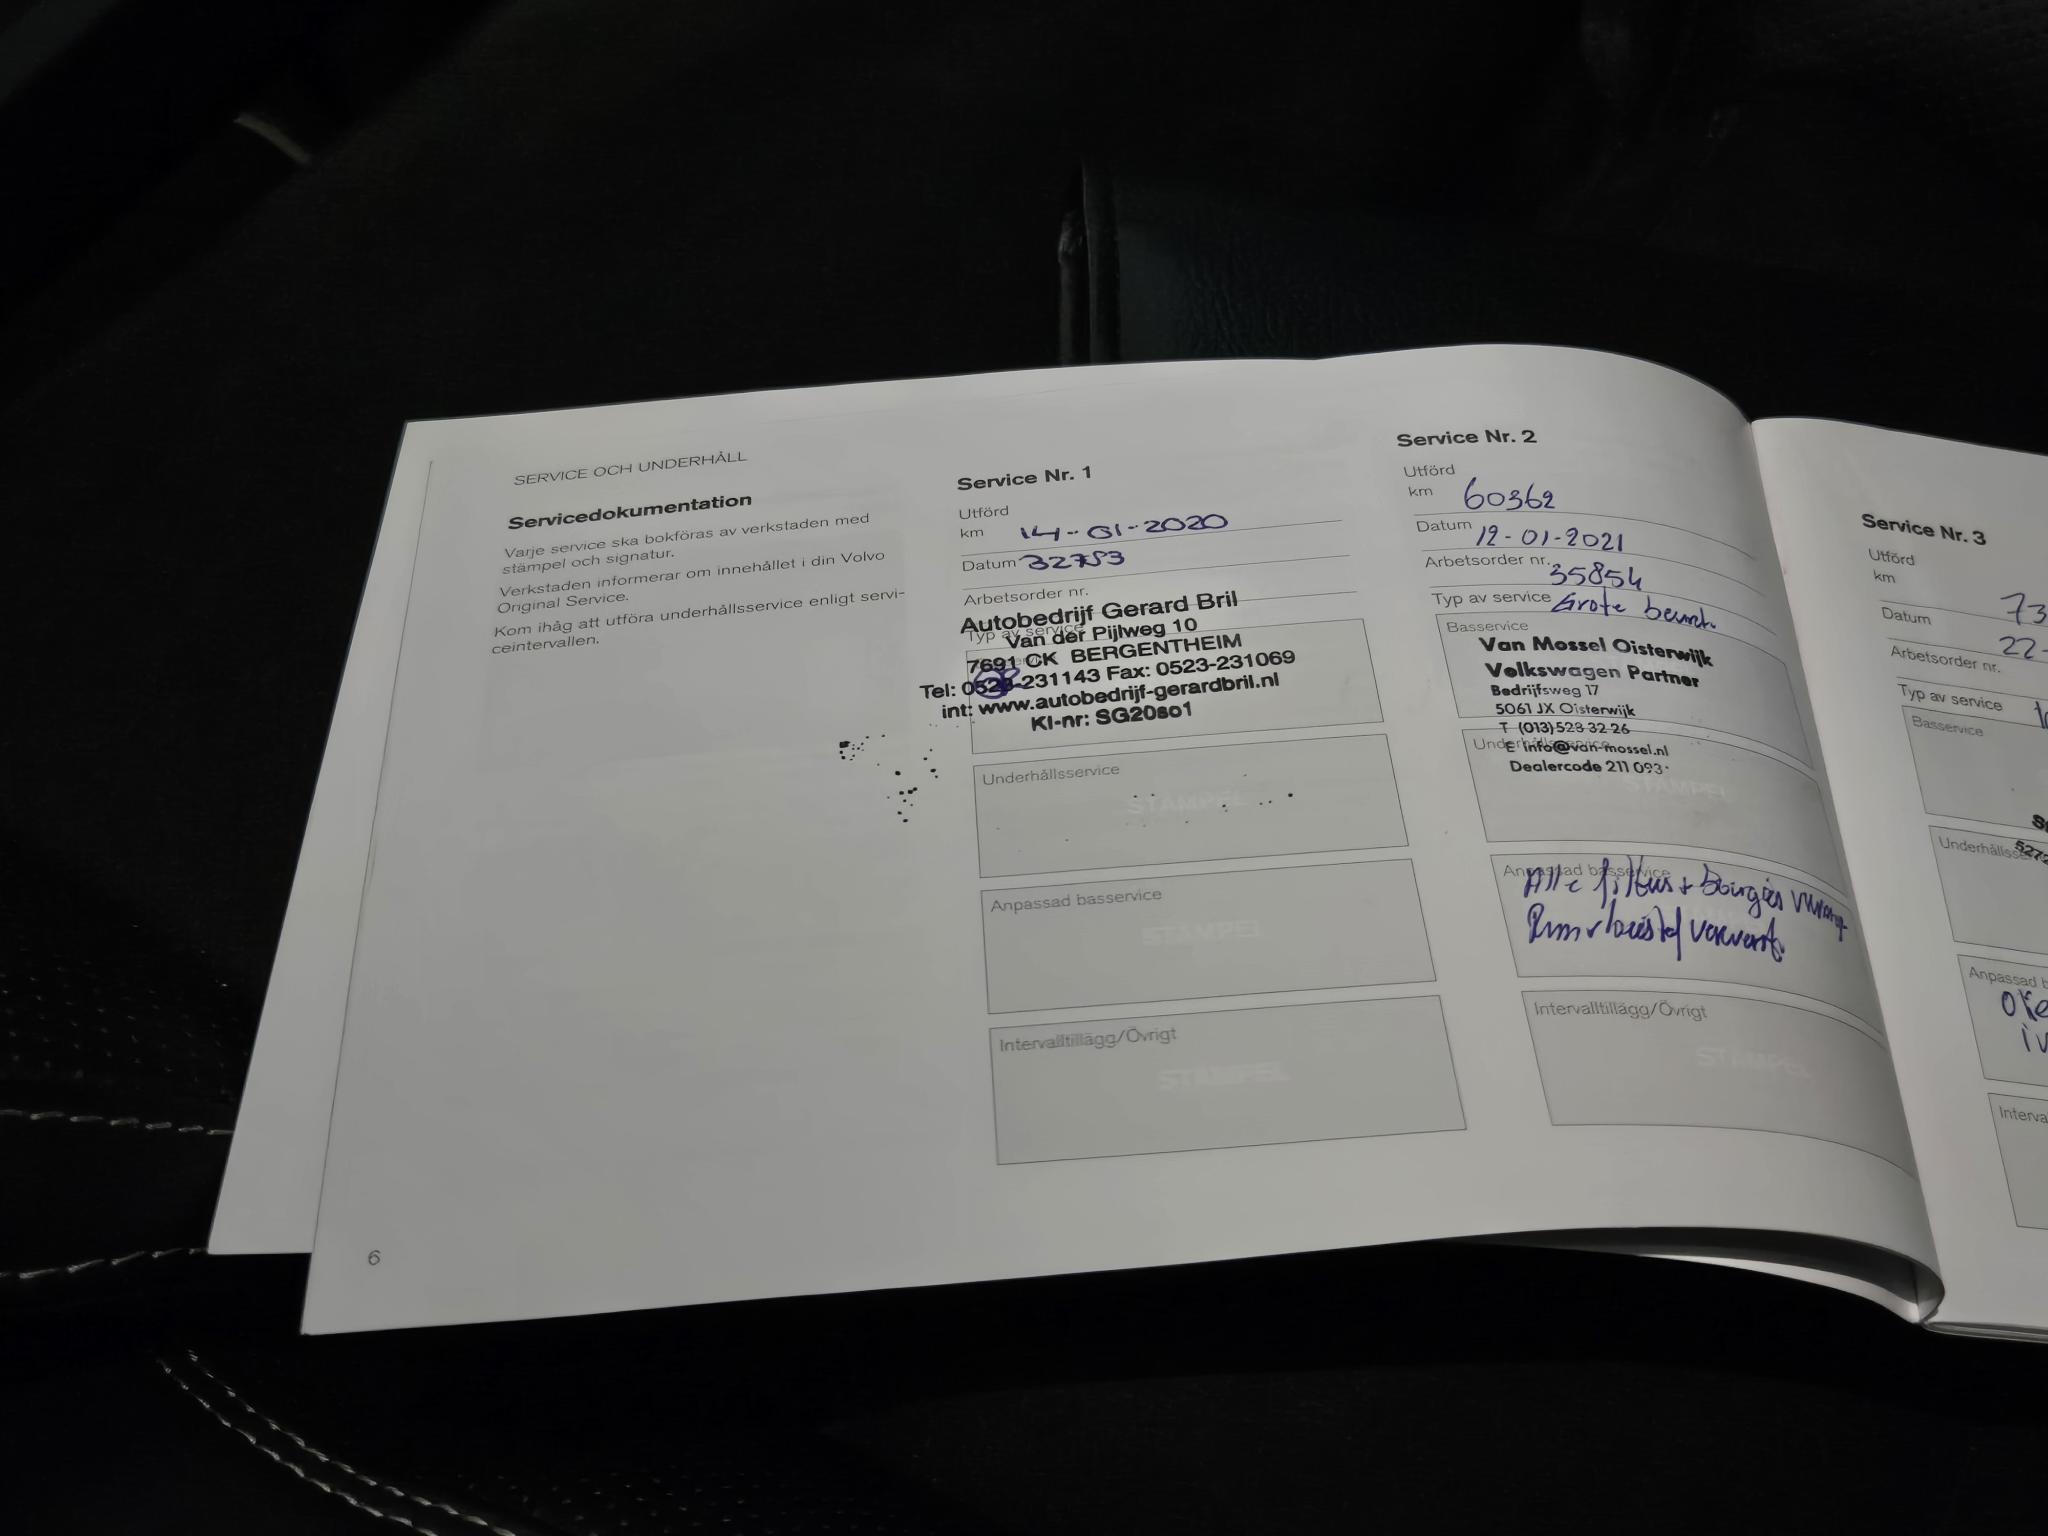 SERVICE OCH UNDERHÅLL
Servicedokumentation
Varje service ska bokföras av verkstaden med
stämpel och signatur.
Verkstaden informerar om innehållet i din Volvo
Original Service.
Kom ihåg att utföra underhållsservice enligt servi-
ceintervallen.
6
Service Nr. 1
Utförd
km 14-01-2020
Datum 32753
Arbetsorder nr.
Typ av service
Autobedrijf Gerard Bril
Van der Pijlweg 10
7691 CK BERGENTHEIM
Tel: 0523-231143 Fax: 0523-231069
int: www.autobedrijf-gerardbril.nl
KI-nr: SG20so1
Underhållsservice
STÄMPEL
Anpassad basservice
STÄMPEL
Intervalltillägg/Övrigt
STÄMPEL
Service Nr. 2
Utförd
km 60362
Datum 12-01-2021
Arbetsorder nr. 35854
Typ av service Grote beurt.
Basservice
Van Mossel Oisterwijk
Volkswagen Partner
Bedrijfsweg 17
5061 JX Oisterwijk
T (013) 528 32 26
E info@van-mossel.nl
Dealercode 211 093
Underhållsservice
STÄMPEL
Anpassad basservice
Alle filters +
Intervalltillägg/Övrigt
STÄMPEL
Service Nr. 3
Utförd
km 73
Datum 22-
Arbetsorder nr.
Typ av service
Basservice
5272
Underhållsse
Anpassad b
Interva